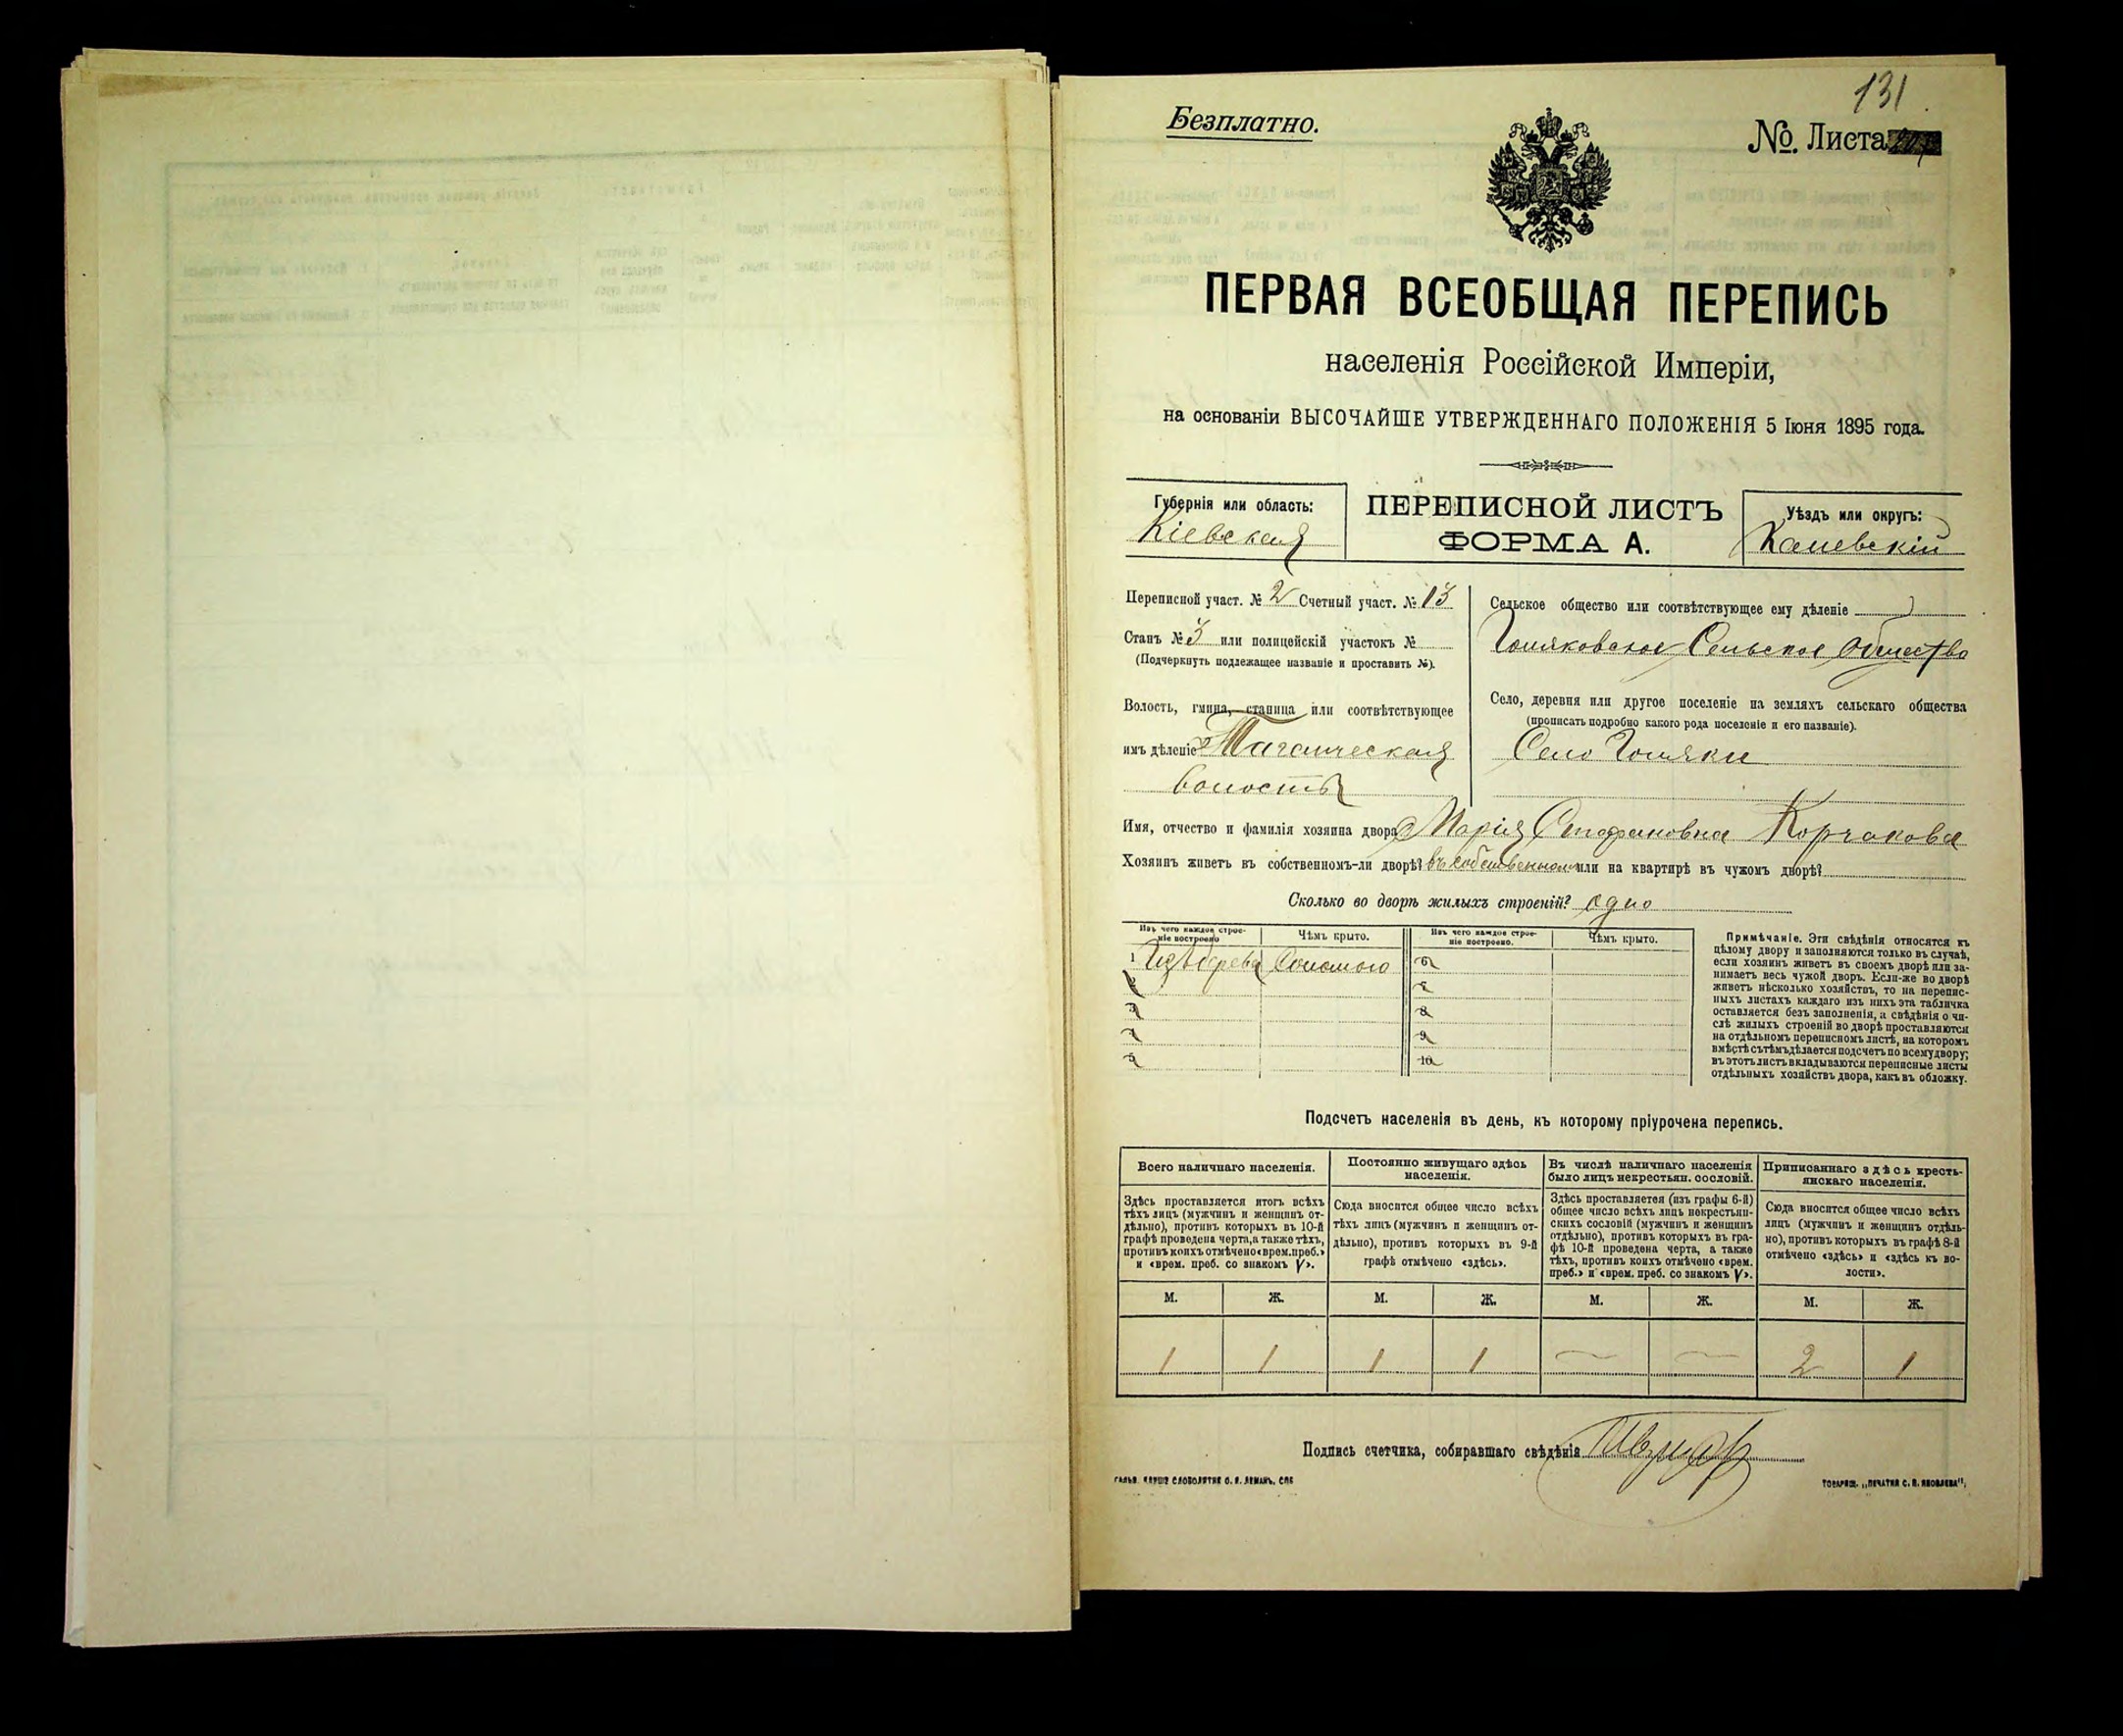 131
Безплатно.
№. Листа
ПЕРВАЯ ВСЕОБЩАЯ ПЕРЕПИСЬ
населенія Россійской Имперіи,
на основаніи ВЫСОЧАЙШЕ УТВЕРЖДЕННАГО ПОЛОЖЕНІЯ 5 Іюня 1895 года.
Губернія или область:
Кіевская
ПЕРЕПИСНОЙ ЛИСТЪ
ФОРМА А.
Уѣздъ или округъ:
Каневскій
Переписной участ. № 2 Счетный участ. № 13
Станъ № 3 или полицейскій участокъ №
(Подчеркнуть подлежащее названіе и проставить №).
Волость, гмина, станица или соотвѣтствующее
имъ дѣленіе Таганческая
волость
Сельское общество или соотвѣтствующее ему дѣленіе
Голяковское Сельское Общество
Село, деревня или другое поселеніе на земляхъ сельскаго общества
(прописать подробно какого рода поселеніе и его названіе).
Село Голяки
Имя, отчество и фамилія хозяина двора Марія Стефановна Корчакова
Хозяинъ живетъ въ собственномъ-ли дворѣ? въ собственномъ или на квартирѣ въ чужомъ дворѣ?
Сколько во дворѣ жилыхъ строеній? одно
Изъ чего каждое строе-
ніе построено
Чѣмъ крыто.
Изъ чего каждое строе-
ніе построено.
Чѣмъ крыто.
1 Изъ дерева Соломою
6
2 7
3 8
4 9
5 10
Примѣчаніе. Эти свѣдѣнія относятся къ
цѣлому двору и заполняются только въ случаѣ,
если хозяинъ живетъ въ своемъ дворѣ или за-
нимаетъ весь чужой дворъ. Если-же во дворѣ
живетъ нѣсколько хозяйствъ, то на перепис-
ныхъ листахъ каждаго изъ нихъ эта табличка
оставляется безъ заполненія, а свѣдѣнія о чи-
слѣ жилыхъ строеній во дворѣ проставляются
на отдѣльномъ переписномъ листѣ, на которомъ
вмѣстѣ съ тѣмъ дѣлается подсчетъ по всему двору;
въ этотъ листъ вкладываются переписные листы
отдѣльныхъ хозяйствъ двора, какъ въ обложку.
Подсчетъ населенія въ день, къ которому пріурочена перепись.
Всего наличнаго населенія.
Здѣсь проставляется итогъ всѣхъ
тѣхъ лицъ (мужчинъ и женщинъ от-
дѣльно), противъ которыхъ въ 10-й
графѣ проведена черта, а также тѣхъ,
противъ коихъ отмѣчено «врем. преб.»
и «врем. преб. со знакомъ V».
Постоянно живущаго здѣсь
населенія.
Сюда вносится общее число всѣхъ
тѣхъ лицъ (мужчинъ и женщинъ от-
дѣльно), противъ которыхъ въ 9-й
графѣ отмѣчено «здѣсь».
Въ числѣ наличнаго населенія
было лицъ некрестьян. сословій.
Здѣсь проставляется (изъ графы 6-й)
общее число всѣхъ лицъ некрестьян-
скихъ сословій (мужчинъ и женщинъ
отдѣльно), противъ которыхъ въ гра-
фѣ 10-й проведена черта, а также
тѣхъ, противъ коихъ отмѣчено «врем.
преб.» и «врем. преб. со знакомъ V».
Приписаннаго здѣсь кресть-
янскаго населенія.
Сюда вносится общее число всѣхъ
лицъ (мужчинъ и женщинъ отдѣль-
но), противъ которыхъ въ графѣ 8-й
отмѣчено «здѣсь» и «здѣсь къ во-
лости».
М. Ж. М. Ж. М. Ж. М. Ж.
1 1 1 1 — — 2 1
Подпись счетчика, собиравшаго свѣдѣнія
ГАЛЬВ. КЛИШЕ СЛОВОЛИТНИ О. И. ЛЕМАНЪ, СПБ
ТОВАРИЩ. „ПЕЧАТНЯ С. П. ЯКОВЛЕВА".